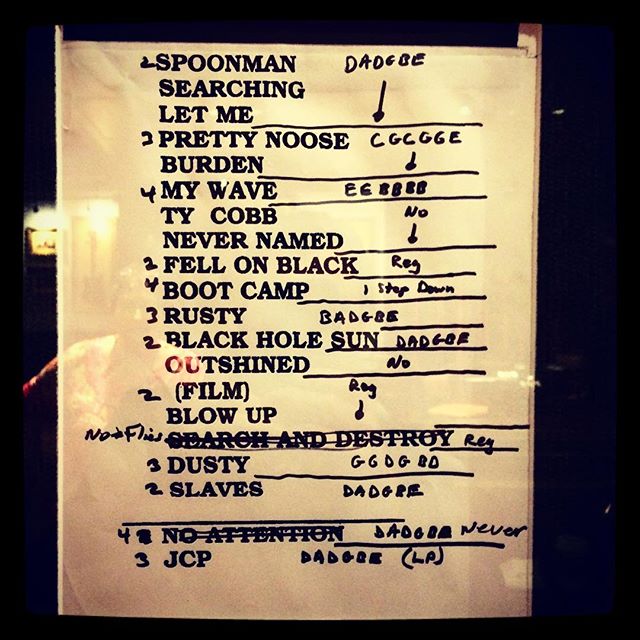 2 SPOONMAN DADGBE
SEARCHING
LET ME
3 PRETTY NOOSE CGCGGE
BURDEN
4 MY WAVE EEBBBB
TY COBB NO
NEVER NAMED
2 FELL ON BLACK Reg
4 BOOT CAMP 1 Step Down
3 RUSTY BADGBE
2 BLACK HOLE SUN DADGBE
OUTSHINED NO
2 (FILM) Reg
BLOW UP
SEARCH AND DESTROY Reg
3 DUSTY GGDGBD
2 SLAVES DADGBE
4 NO ATTENTION DADGBE Never
3 JCP DADGBE (LP)